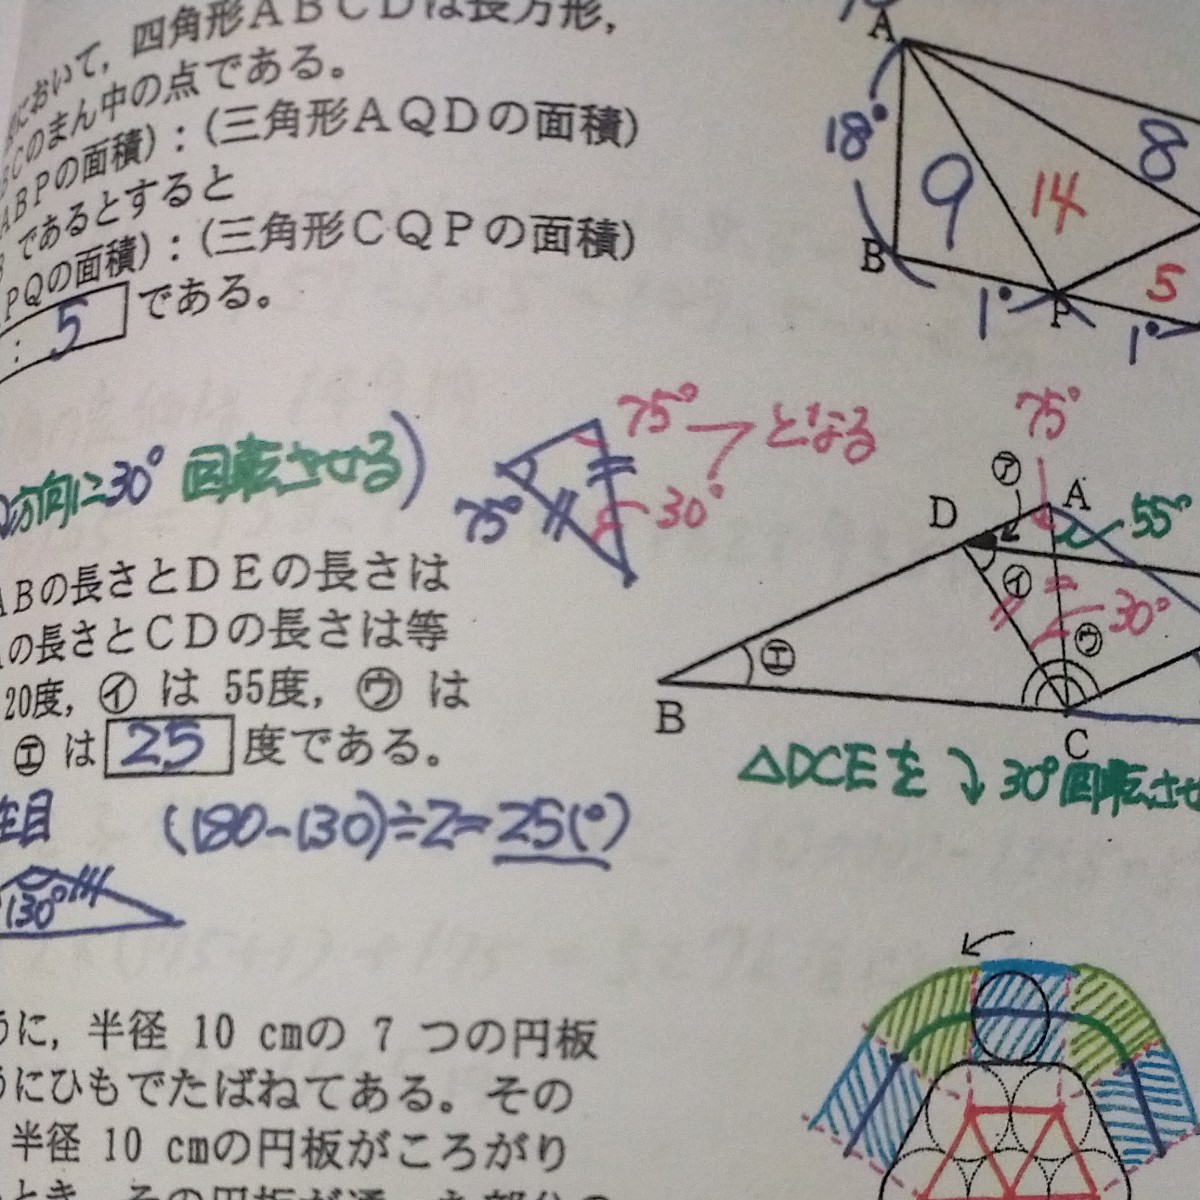 において, 四角形ABCDは長方形,
BCのまん中の点である。
ABPの面積):(三角形AQDの面積)
であるとすると
PQの面積):(三角形CQPの面積)
: 5 である。
A
18°
9
14
8
B
1°
P
5
1°
方向に30° 回転させる)
75°
75°
30°
となる
ABの長さとDEの長さは
の長さとCDの長さは等
20度, ㋑ は 55度, ㋒ は
㋓ は 25 度である。
(180-130)÷2=25(°)
130°
75°
㋐
D
A
55°
㋑
30°
㋒
㋓
B
C
△DCEを 30°回転させ
うに, 半径 10 cmの 7 つの円板
うにひもでたばねてある。その
半径 10 cmの円板がころがり